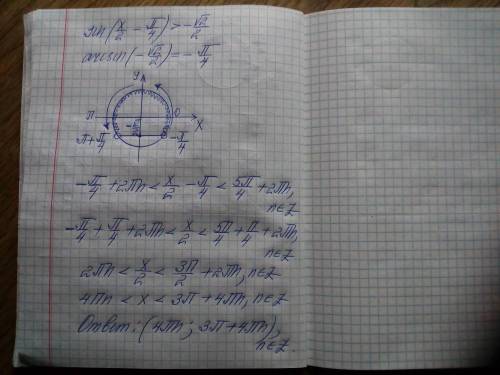 sin(x/2 - π/4) > -√2/2
arcsin(-√2/2) = -π/4
y
π 0 x
π+π/4 -π/4
-π/4 + 2πn < x/2 - π/4 < 5π/4 + 2πn,
n∈Z
-π/4 + π/4 + 2πn < x/2 < 5π/4 + π/4 + 2πn,
n∈Z
2πn < x/2 < 3π/2 + 2πn, n∈Z
4πn < x < 3π + 4πn, n∈Z
Ответ: (4πn; 3π+4πn),
n∈Z.